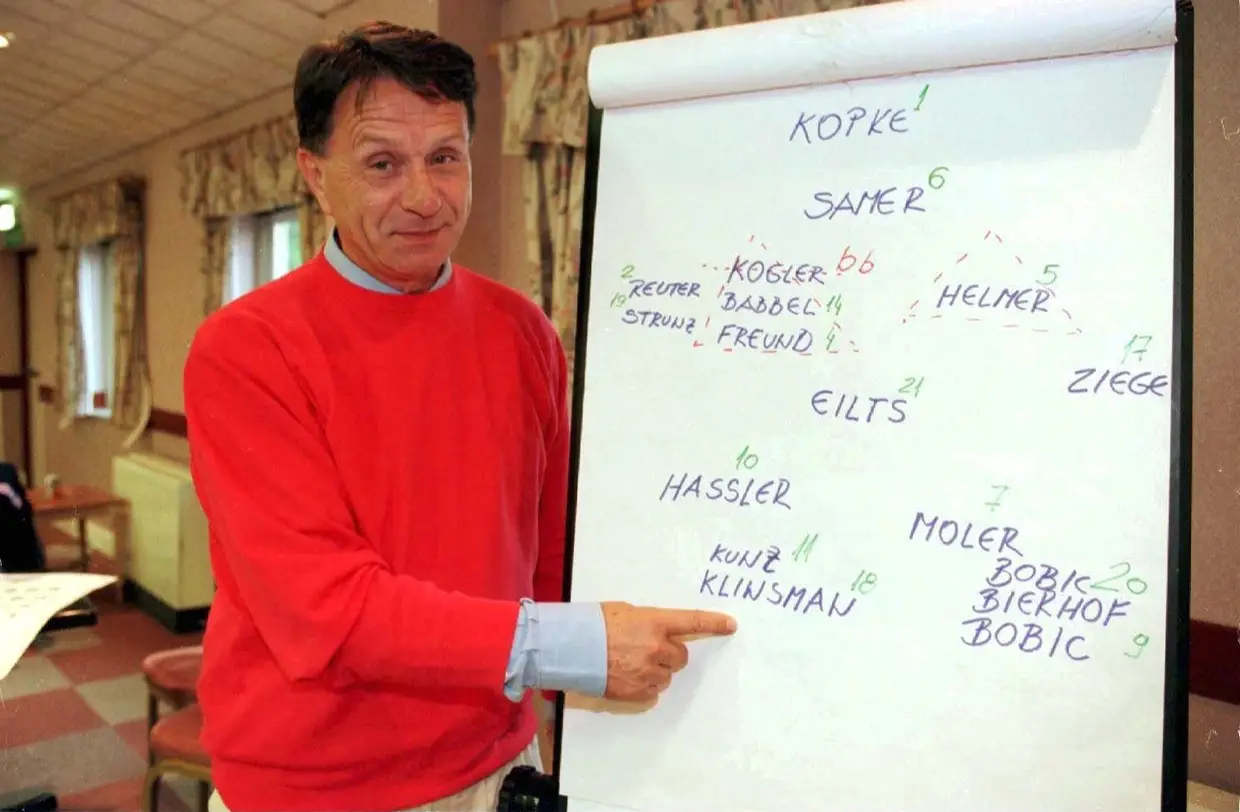 KOPKE 1
SAMER 6
KOGLER 66
2 REUTER
BABBEL 14
19 STRUNZ
FREUND 4
HELMER 5
ZIEGE 17
EILTS 21
HASSLER 10
MOLER 7
KUNZ 11
KLINSMAN 18
BOBIC 20
BIERHOF
BOBIC 9